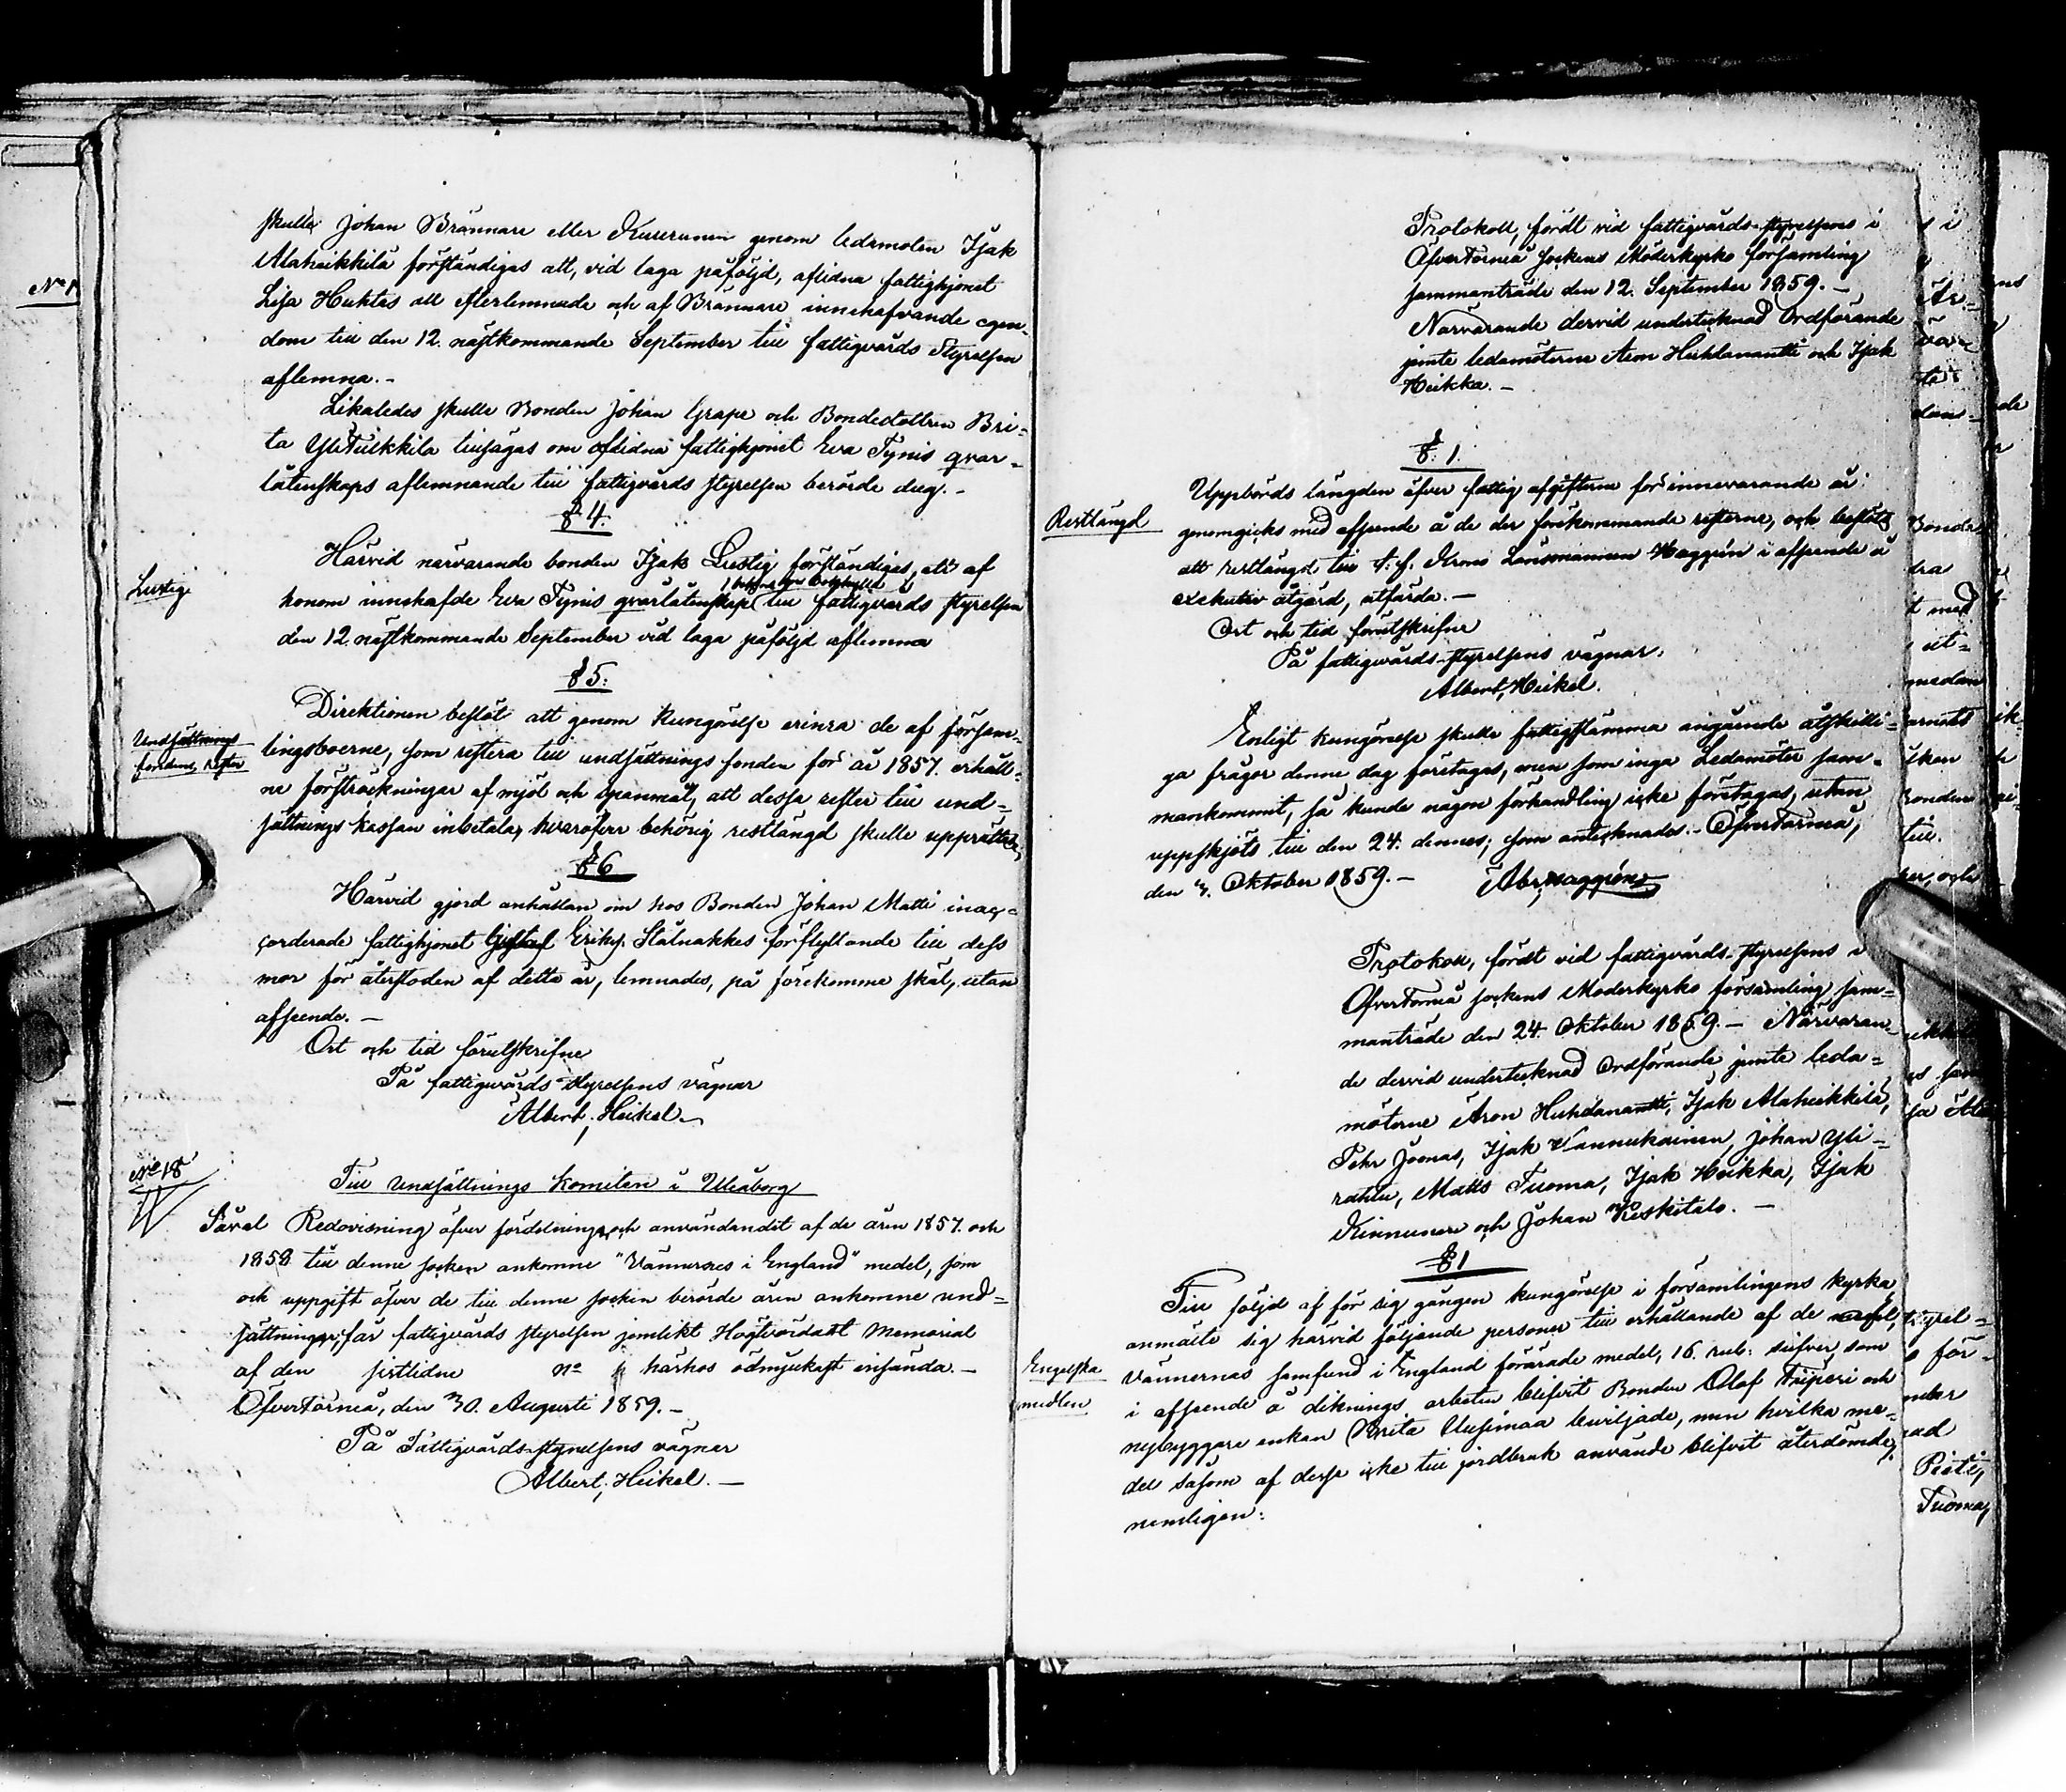 skulle Johan Brännare eller Kuurunen genom ledamoten Isak
Alaheikkilä förständigas att, vid laga påföljd, aflidna fattighjonet
Lisa Huktas all efterlemnade och af Brännare innehafvande egen-
dom till den 12. nästkommande September till fattigvårds Styrelsen
aflemna.-
Likaledes skulle Bonden Johan Grape och Bondedottren Bri=
ta Ylituikkila tillsägas om aflidna fattighjonet Eva Tynis qvar-
låtenskaps aflemnande till fattigvårds styrelsen berörde dag.-
§ 4.
Lustig
Härvid närvarande bonden Isak Lustig förständigas, att af
honom innehafde Eva Tynis qvarlåtenskap till fattigvårds styrelsen
den 12. nästkommande September vid laga påföljd aflemna
§ 5:
Undsättnings
fondens rester
Direktionen beslöt att genom kungörelse erinra de af försam-
lingsboerne, som restera till undsättnings fonden för år 1857. erhåll=
ne försträckningar af mjöl och spanmål, att dessa rester till und=
sättnings kassan inbetala, hvaröfver behörig restlängd skulle upprättas,
§ 6
Härvid gjord anhållan om hos Bonden Johan Matti inac=
corderade fattighjonet Gustaf Eriks. Stålnakkes förflyttande till dess
mor för återstoden af detta år, lemnades, på förekomne skäl, utan
afseende. -
Ort och tid förutskrifne
På fattigvårds Styrelsens vägnar
Albert Heikel
No 18
Till Undsättnings Komiten i Uleåborg
Såväl Redovisning öfver fördelningen och användandet af de åren 1857. och
1858 till denne socken ankomne "Vännernes i England" medel, som
och uppgift öfver de till denne socken berörde åren ankomne und=
sättningar, får fattigvårds styrelsen jemlikt Högtvördadt Memorial
af den sistlidne No härhos ödmjukast insända.-
ÖfverTorneå, den 30. Augusti 1859.-
På Fattigvårds-styrelsens vägnar
Albert Heikel.-
Protokoll, fördt vid fattigvårds-styrelsens i
ÖfverTorneå sockens Moderkyrko församling
sammanträde den 12. September 1859.-
Närvarande dervid undertecknad Ordförande
jemte ledamöterne Aron Huhdanantti och Isak
Heikka.-
§. 1.
Restlängd
Uppbörds längden öfver fattig afgifterne för innevarande år
genomgicks med afseende å de der förekommande resterne, och beslöts
att restlängd till t. f. Krono Länsmannen Haggrén i afseende å
exekutiv åtgärd, utfärda.-
Ort och tid förutskrifne
På fattigvårds-styrelsens vägnar.
Albert Heikel.
Enligt kungörelse skulle fattigstämma angående åtskilli=
ga frågor denne dag företagas, men som inga Ledamöter sam-
mankommit, så kunde någon förhandling icke företagas, utan
uppskjöts till den 24. dennes; som antecknades.- ÖfverTorneå,
den 3. Oktober 1859.- Abr. Haggrén
Protokoll, fördt vid fattigvårds-styrelsens i
ÖfverTorneå sockens Moderkyrko församling sam=
manträde den 24. Oktober 1859.- Närvaran-
de dervid undertecknad Ordförande jemte leda=
möterne Aron Huhdanantti, Isak Alaheikkilä,
Pehr Joonas, Isak Vannukainen, Johan Yli-
rahtu, Matts Tuoma, Isak Heikka, Isak
Kinnunen och Johan Keskitalo.-
§ 1
Engelska
medlen
Till följd af för sig gången kungörelse i församlingens kyrka
anmälte sig härvid följande personer till erhållande af de
Vännernas samfund i England förärade medel, 16. rub: silfver, som
i afseende å diknings arbeten blifvit Bonden Olof Piiperi och
nybyggare enkan Brita Uusimaa beviljade, men hvilka me=
del såsom af desse icke till jordbruk använde blifvit återdömde,
nemligen: